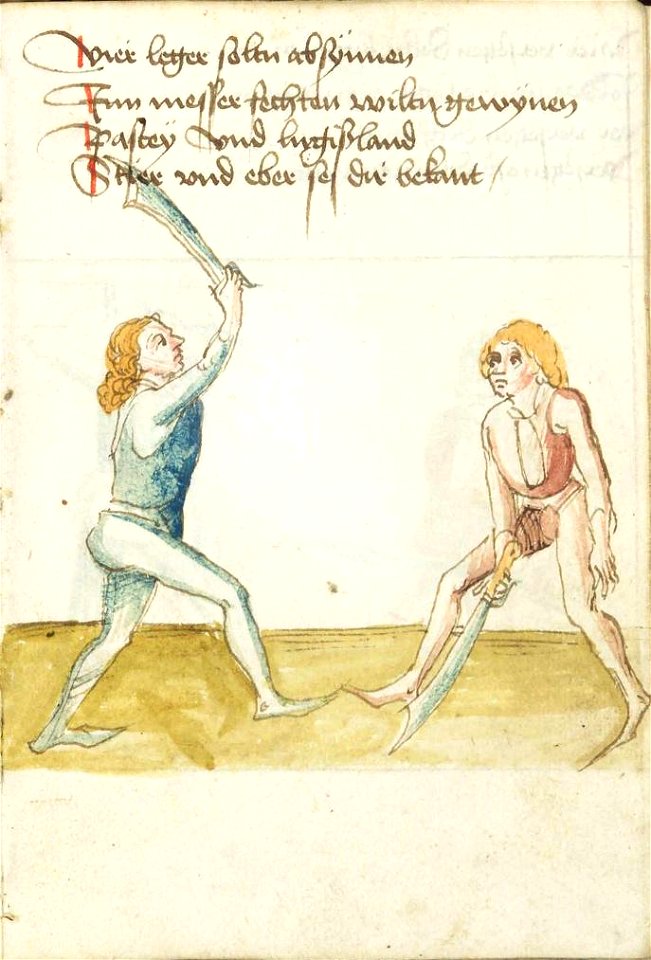 Vier leger soltu absynnen
Inn messer fechten wiltu gewynen
Pastey vnd lugißland
Stier vnd eber sei dir bekant